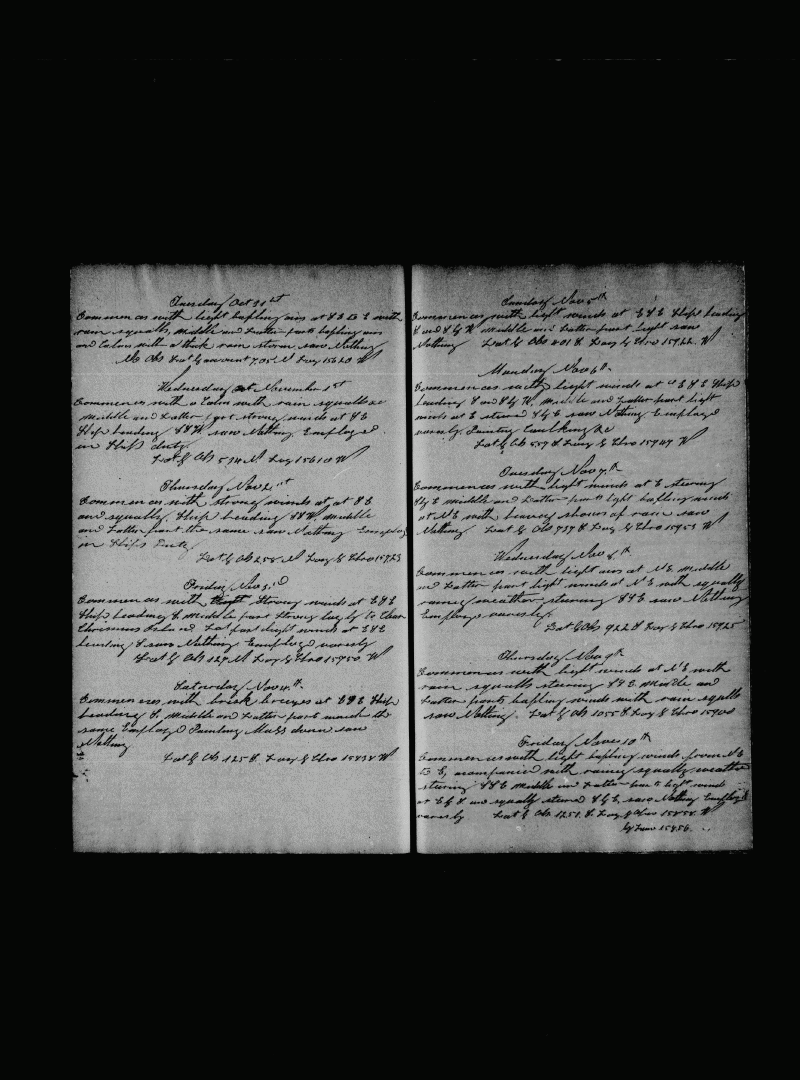 Tuesday Oct 31st
Commences with light bafling airs at S E to E with
rain squalls, middle and Latter parts bafling airs
and Calms with a thick rain storm saw Nothing
No Obs Lat by account 7.05 N Long 156 20 W
Wednesday November 1st
Commences with a Calm with rain squalls &c
middle and Latter part strong winds at S E
Ship heading S S W saw Nothing Employed
in Ships duty
Lat by Ob 5 94 N Long 156 10 W
Thursday Nov 2
Commences with strong winds at at S E
and squally, Ship heading S S W, middle
and Latter part the same saw Nothing Employ
in Ships Duty
Lat by Ob 2 58 N Long by Chro 157 23
Friday Nov 3rd
Commences with Strong winds at E S E
Ship heading S middle part strong lug by to Clear
Christmas Island Lat part light winds at E S E
heading S saw Nothing Employed variously
Lat by Ob 1 27 N Long by Chro 159 50 W
Saturday Nov 4th
Commences with brisk breezes at E S E Ship
heading S, Middle and Latter parts much the
same Employed Painting Mast down saw
Nothing
Lat by Ob 1 25 S. Long by Chro 158 38 W
Sunday Nov 5th
Commences with light winds at E S E Ship heading
S and S by W middle and Latter part light saw
Nothing Lat by Obs 4 01 S Long by Chro 159 22 W
Monday Nov 6th
Commences with light winds at E S E Ship
heading S and S by W, middle and Latter part light
winds at E steered S by E saw Nothing Employed
variously Painting Caulking &c
Lat by Ob 5 57 S Long by Chro 159 47 W
Tuesday Nov 7th
Commences with light winds at E steering
S by E middle and Latter parts light bafling winds
at N E with heavy shower of rain saw
Nothing Lat by Obs 7 37 S Long by Chro 159 53 W
Wednesday Nov 8th
Commences with light airs at N E middle
and Latter part light winds at N E with squally
rainy weather steering S S E saw Nothing
Employed variously
Lat by Obs 9 22 S Long by Chro 159 25
Thursday Nov 9th
Commences with light winds at N E with
rain squalls steering S S E Middle and
Latter parts bafling winds with rain squalls
saw Nothing. Lat by Obs 10 55 S Long by Chro 159 00
Friday Nov 10th
Commences with light bafling winds from N E
to E, acompanied with rainy squally weather
steering S S E middle and Latter parts light winds
at E by S and squally steered S by E, saw Nothing Employed
variously Lat by Ob 12 51. S. Long by Chro 158 58. W
by Lunar 158 56.